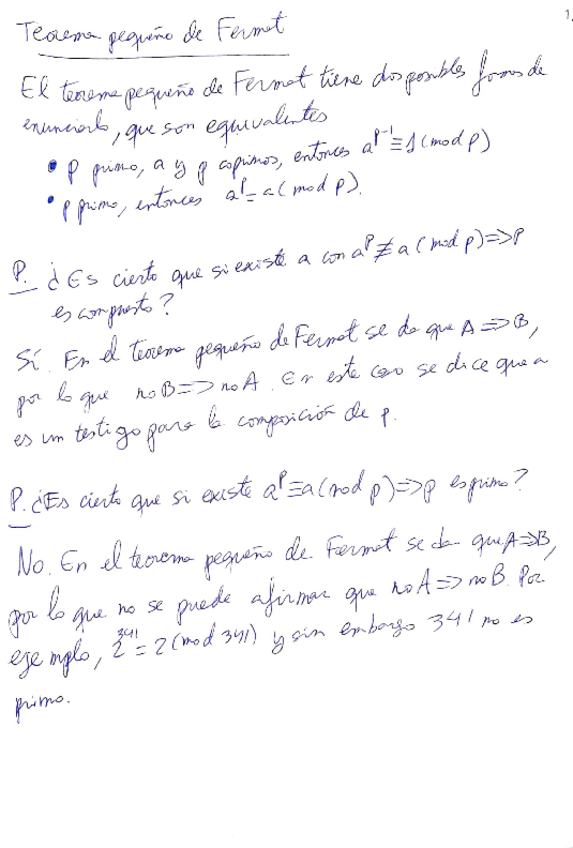 1.
Teorema pequeño de Fermat
El teorema pequeño de Fermat tiene dos posibles formas de
enunciarlo, que son equivalentes
• p primo, a y p coprimos, entonces a^{p-1} ≡ 1 (mod p)
• p primo, entonces a^p ≡ a (mod p).
P. ¿Es cierto que si existe a con a^p ≢ a (mod p) => p
es compuesto?
Sí. En el teorema pequeño de Fermat se da que A => B,
por lo que no B => no A. En este caso se dice que a
es un testigo para la composición de p.
P. ¿Es cierto que si existe a^p ≡ a (mod p) => p es primo?
No. En el teorema pequeño de Fermat se da que A => B,
por lo que no se puede afirmar que no A => no B. Por
ejemplo, 2^{341} = 2 (mod 341) y sin embargo 341 no es
primo.